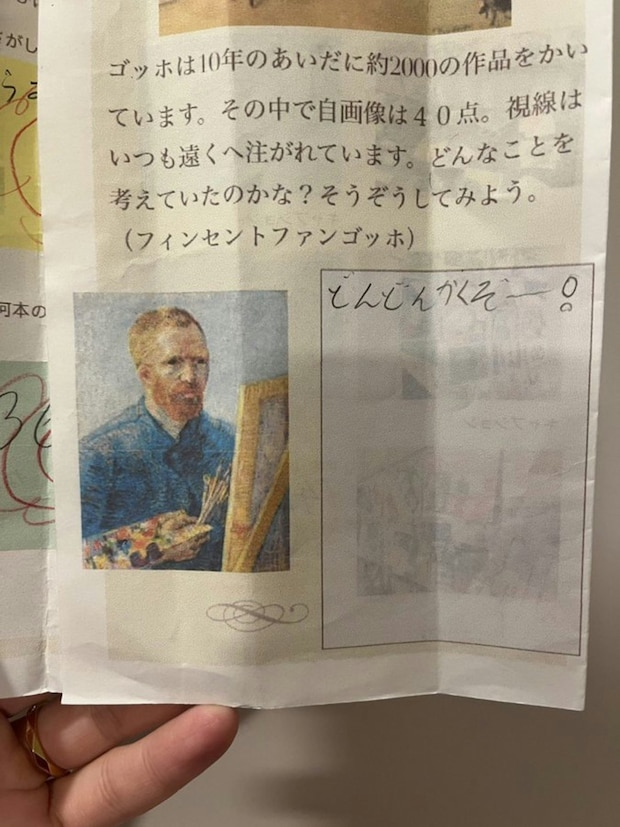 ゴッホは10年のあいだに約2000の作品をかい
ています。その中で自画像は４０点。視線は
いつも遠くへ注がれています。どんなことを
考えていたのかな？そうぞうしてみよう。
（フィンセントファンゴッホ）
どんどんかくぞー！
さがし
河本の